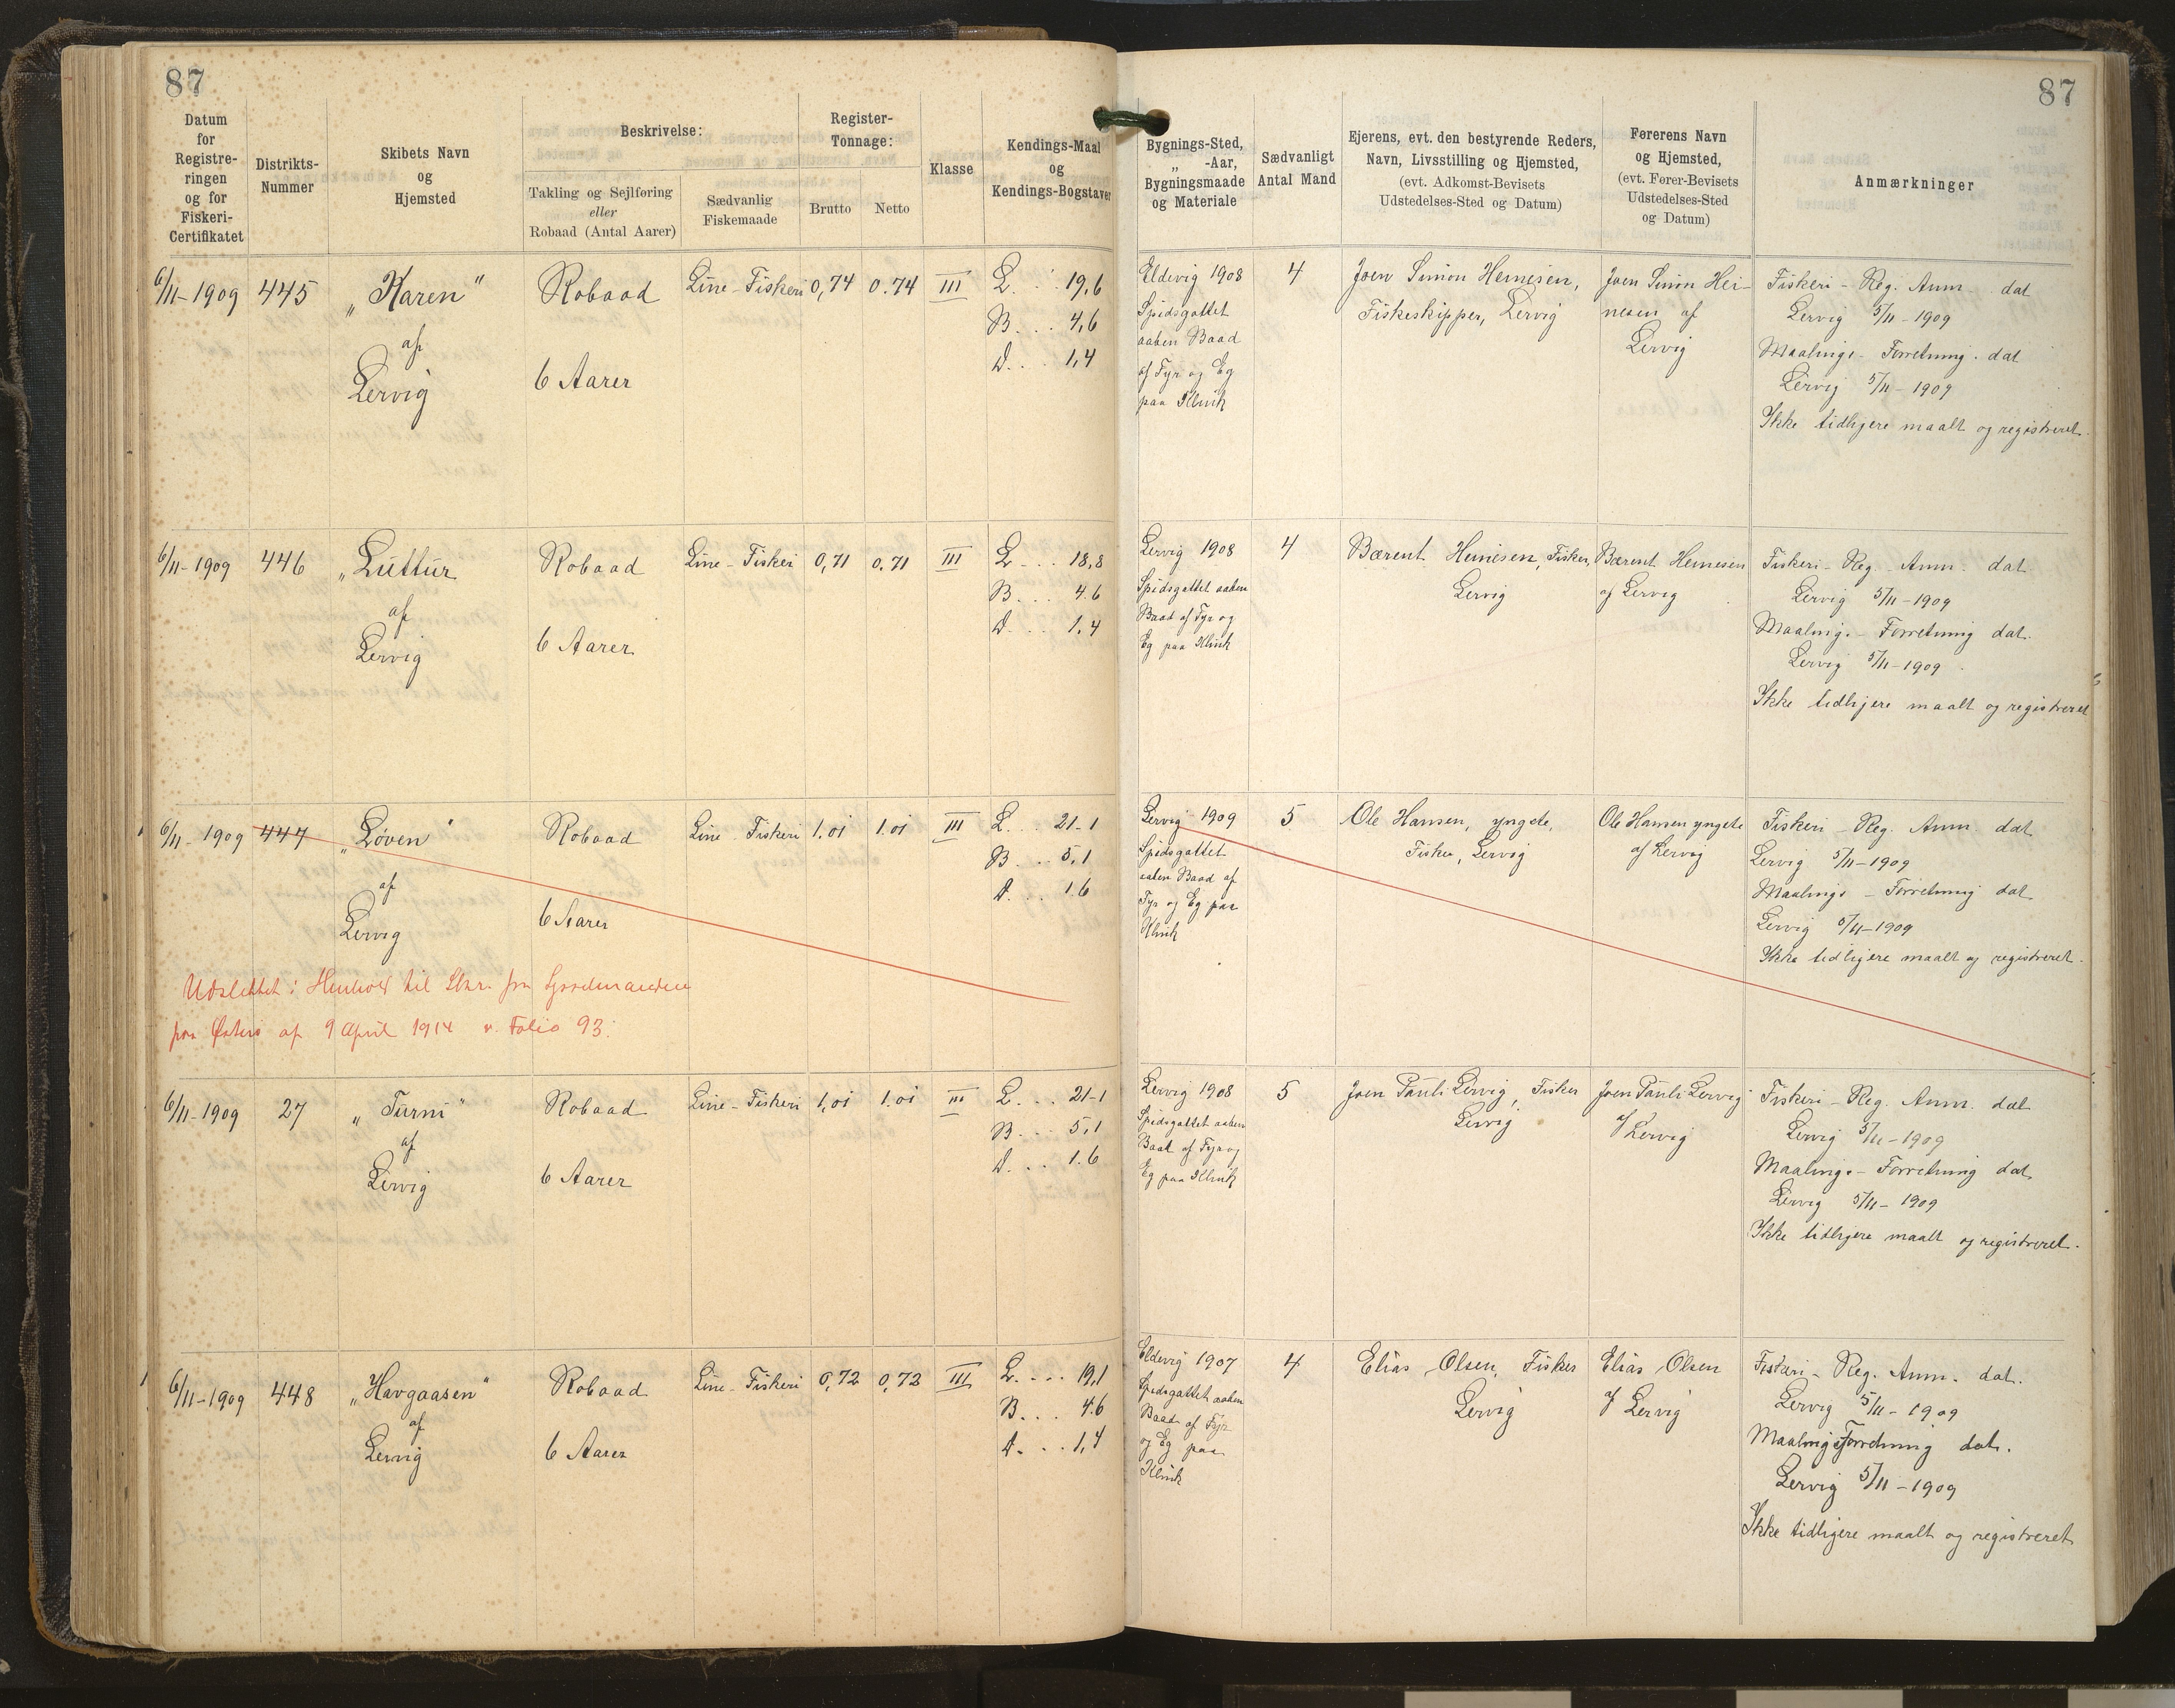 87
87
Datum
for
Registre-
ringen
og for
Fiskeri-
Certifikatet
Distrikts-
Nummer
Skibets Navn
og
Hjemsted
Beskrivelse:
Takling og Sejlføring
eller
Robaad (Antal Aarer)
Sædvanlig
Fiskemaade
Register-
Tonnage:
Brutto
Netto
Klasse
Kendings-Maal
og
Kendings-Bogstaver
Bygnings-Sted,
„ -Aar,
Bygningsmaade
og Materiale
Sædvanligt
Antal Mand
Ejerens, evt. den bestyrende Reders,
Navn, Livsstilling og Hjemsted,
(evt. Adkomst-Bevisets
Udstedelses-Sted og Datum)
Førerens Navn
og Hjemsted,
(evt. Fører-Bevisets
Udstedelses-Sted
og Datum)
Anmærkninger
6/11-1909
445
„Karen"
af
Lervig
Robaad
6 Aarer
Line-Fiskeri
0,74
0.74
III
L. . . 19,6
B. . . 4,6
D. . . 1,4
Eldevig 1908
Spidsgattet
aaben Baad
af Fyr og Eg
paa Klink
4
Joen Simon Heinesen,
Fiskeskipper, Lervig
Joen Simon Hei-
nesen af
Lervig
Fiskeri-Reg. Anm. dat
Lervig 5/11-1909
Maalings-Forretning. dat
Lervig 5/11-1909
Ikke tidligere maalt og registreret.
6/11-1909
446
„Luttur
af
Lervig
Robaad
6 Aarer
Line-Fiskeri
0,71
0.71
III
L. . . 18,8
B. . . 4.6
D. . . 1,4
Lervig 1908
Spidsgattet aaben
Baad af Fyr og
Eg paa Klink
4
Bærent Heinesen, Fisker,
Lervig
Bærent Heinesen
af Lervig
Fiskeri-Reg. Anm. dat.
Lervig 5/11-1909
Maalings-Forretning dat.
Lervig 5/11-1909.
Ikke tidligere maalt og registreret
6/11-1909
447
„Løven"
af
Lervig
Robaad
6 Aarer
Line Fiskeri
1.01
1.01
III
L. . . 21-1
B. . . 5,1
D. . . 1.6
Lervig 1909
Spidsgattet
aaben Baad af
Fyr og Eg paa
Klink
5
Ole Hansen, yngste,
Fisker, Lervig
Ole Hansen yngste
af Lervig
Fiskeri-Reg. Anm. dat
Lervig 5/11-1909
Maalings-Forretning dat
Lervig 5/11-1909
Ikke tidligere maalt og registreret.
Udslettet i Henhold til Skr. fra Sysselmanden
paa Østerø af 9 April 1914 v. Folio 93.
6/11-1909
27
„Turni"
af
Lervig
Robaad
6 Aarer
Line-Fiskeri
1,01
1.01
III
L. . . 21-1
B. . . 5,1
D. . . 1.6
Lervig 1908
Spidsgattet aaben
Baad af Fyr og
Eg paa Klink
5
Joen Pauli Lervig, Fisker
Lervig
Joen Pauli Lervig
af Lervig
Fiskeri-Reg. Anm. dat
Lervig 5/11-1909
Maalings-Forretning dat
Lervig 5/11-1909
Ikke tidligere maalt og registreret.
6/11-1909
448
„Havgaasen"
af
Lervig
Robaad
6 Aarer
Line-Fiskeri
0,72
0,72
III
L. . . . 19,1
B. . . 4.6
D. . . 1,4
Eldevig 1907
Spidsgattet aaben
Baad af Fyr
og Eg paa
Klink
4
Elias Olsen, Fisker
Lervig
Elias Olsen
af Lervig
Fiskeri-Reg. Anm. dat.
Lervig 5/11-1909
Maalingsforretning dat.
Lervig 5/11-1909
Ikke tidligere maalt og registreret